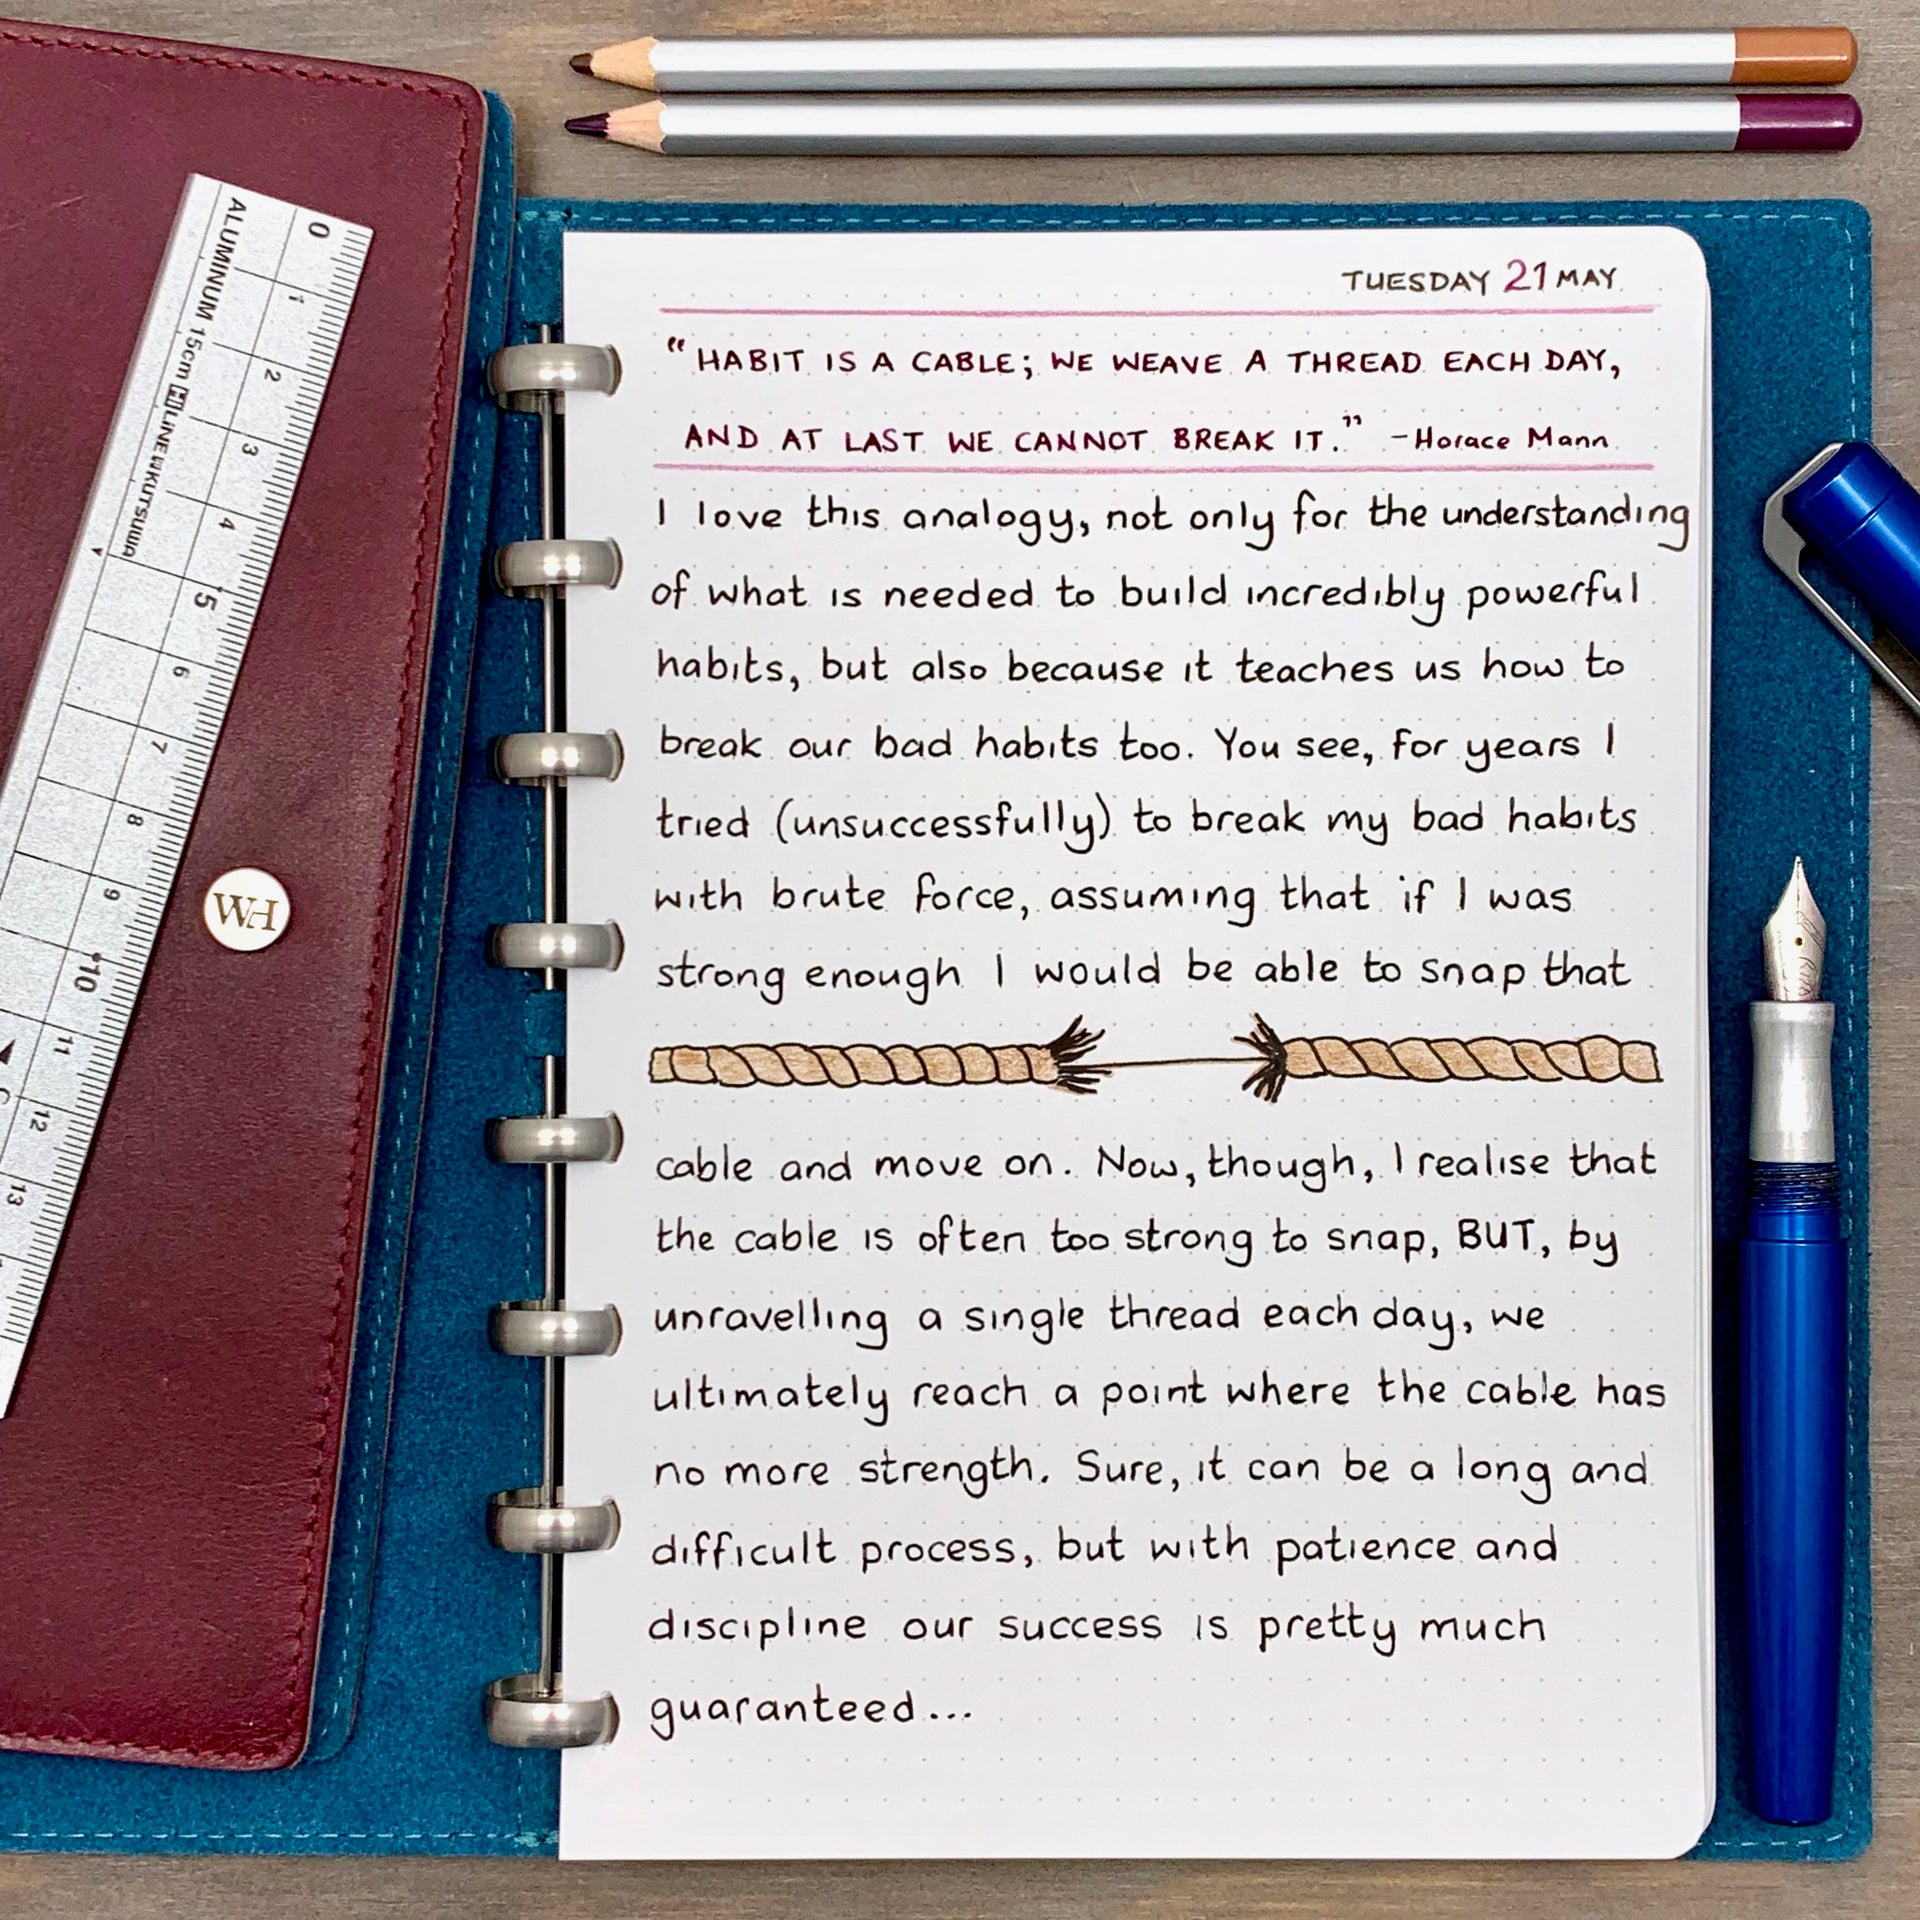 TUESDAY 21 MAY
“HABIT IS A CABLE; WE WEAVE A THREAD EACH DAY,
AND AT LAST WE CANNOT BREAK IT.” -Horace Mann
I love this analogy, not only for the understanding
of what is needed to build incredibly powerful
habits, but also because it teaches us how to
break our bad habits too. You see, for years I
tried (unsuccessfully) to break my bad habits
with brute force, assuming that if I was
strong enough I would be able to snap that
cable and move on. Now, though, I realise that
the cable is often too strong to snap, BUT, by
unravelling a single thread each day, we
ultimately reach a point where the cable has
no more strength. Sure, it can be a long and
difficult process, but with patience and
discipline our success is pretty much
guaranteed...
ALUMINUM 15cm HiLINE KUTSUWA
0 1 2 3 4 5 6 7 8 9 10 11 12 13
WH